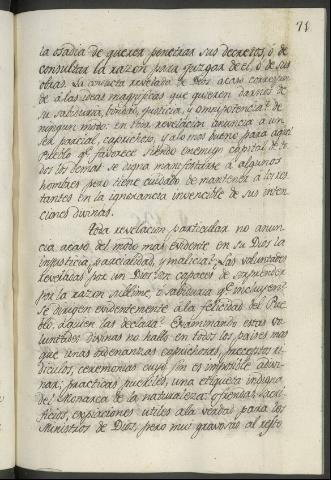 71
la osadia de querer penetrar sus decretos, ó de
consultar la razon para juzgar de el, ó de sus
obras. La conducta revelada de Dios acaso correspon-
de a las ideas magnificas que quieren darnos de
su sabiduria, bondad, justicia, y omnipotencia? de
ningun modo. En toda revelacion anuncia a un
ser parcial, caprichoso, y a lo mas bueno para aquel
Pueblo qe. favorece siendo enemigo capital de to-
dos los demas. se digna manifestarse á algunos
hombres pero tiene cuidado de mantener á los res-
tantes en la ignorancia invencible de sus inten-
ciones divinas.
Toda revelacion particular no anun-
cia acaso del modo mas evidente en su Dios la
injusticia, parcialidad, y malicia? Las voluntades
reveladas por un Dios son capaces de sorprender
por la razon sublime, ó sabiduria qe. incluyen?
se dirigen evidentemente á la felicidad del Pue-
blo, á quien las declara? Examinando estas vo-
luntades divinas no hallo en todos los paises mas
que unas ordenanzas caprichosas, preceptos ri-
diculos, ceremonias cuyo fin es imposible adivi-
nar; practicas pueriles, una etiqueta indigna
del Monarca de la naturaleza: ofrendas, sacri-
ficios, expiaciones utiles a la verdad para los
Ministros de Dios, pero mui gravosas al resto